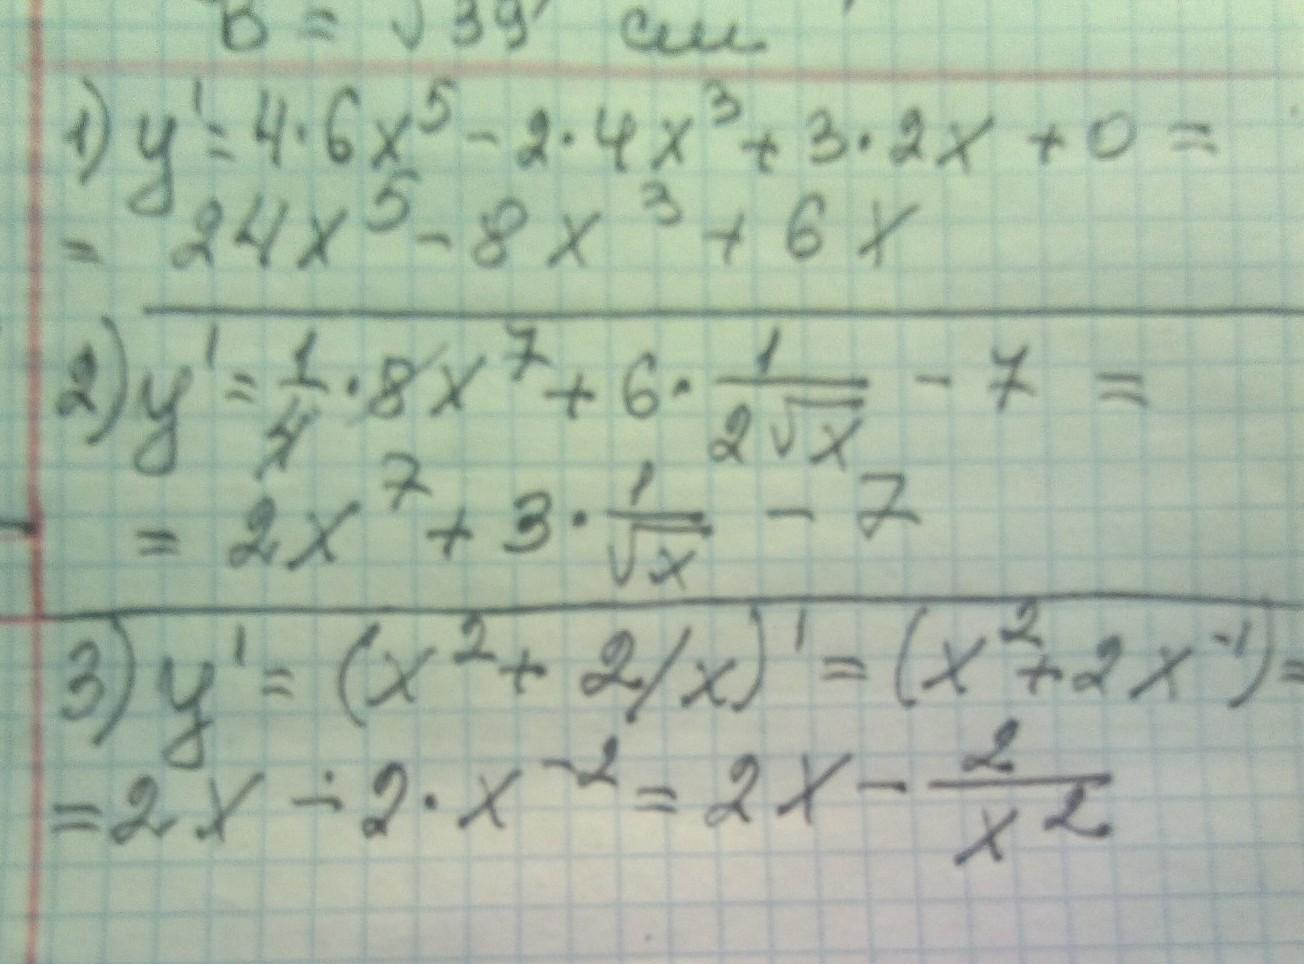 B = √39 см
1) y' = 4·6x⁵ - 2·4x³ + 3·2x + 0 =
= 24x⁵ - 8x³ + 6x
2) y' = 1/4 · 8x⁷ + 6 · 1/(2√x) - 7 =
= 2x⁷ + 3 · 1/√x - 7
3) y' = (x² + 2/x)' = (x² + 2x⁻¹) =
= 2x - 2·x⁻² = 2x - 2/x²